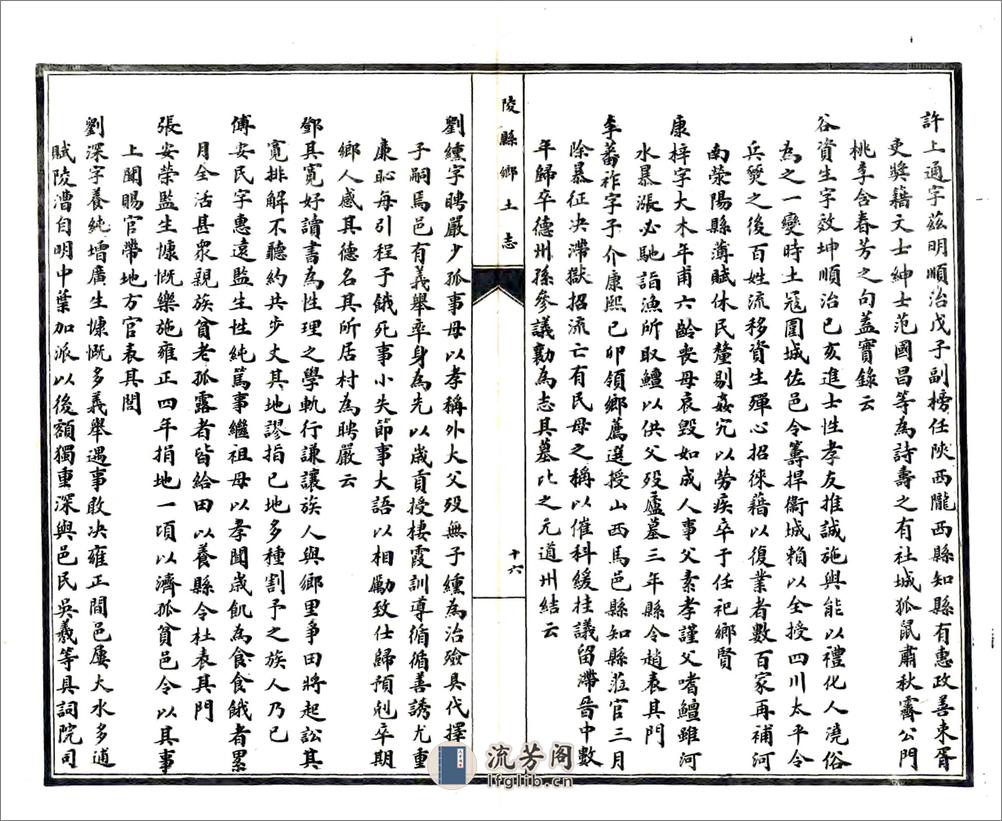 許上通字茲明順治戊子副榜任陝西隴西縣知縣有惠政善束胥
吏奬藉文士紳士范國昌等為詩壽之有社城狐鼠肅秋霽公門
桃李含春芳之句蓋實錄云
谷資生字效坤順治己亥進士性孝友推誠施與能以禮化人澆俗
為之一變時土冦圍城佐邑令籌捍衛城賴以全授四川太平令
兵燹之後百姓流移資生殫心招徠藉以復業者數百家再補河
南滎陽縣薄賦休民釐剔姦宄以勞疾卒于任祀鄉賢
康梓字大木年甫六齡喪母哀毀如成人事父素孝謹父嗜鱣雖河
水暴漲必馳詣漁所取鱣以供父歿廬墓三年縣令趙表其門
李蕃祚字子介康熙己卯領鄉薦選授山西馬邑縣知縣蒞官三月
除暴征决滯獄招流亡有民母之稱以催科緩挂議留滯晉中數
年歸卒德州孫參議勷為志其墓比之元道州結云
陵縣鄉土志
十六
劉纁字聘嚴少孤事母以孝稱外大父歿無子纁為治殮具代擇
子嗣焉邑有義舉率身為先以歲貢授棲霞訓導循循善誘尤重
廉恥每引程子餓死事小失節事大語以相勵致仕歸預剋卒期
鄉人感其德名其所居村為聘嚴云
鄧其寬好讀書為性理之學軌行謙讓族人與鄉里爭田將起訟其
寬排解不聽約共步丈其地謬指己地多種割予之族人乃已
傅安民字惠遠監生性純篤事繼祖母以孝聞歲飢為食食餓者累
月全活甚眾親族貧老孤露者皆給田以養縣令杜表其門
張安榮監生慷慨樂施雍正四年捐地一項以濟孤貧邑令以其事
上聞賜官帶地方官表其閭
劉深字養純壻廣生慷慨多義舉遇事敢决雍正間邑屢大水多逋
賦陵漕自明中葉加派以後額獨重深與邑民吳羲等具詞院司
流芳阁
lfglib.cn